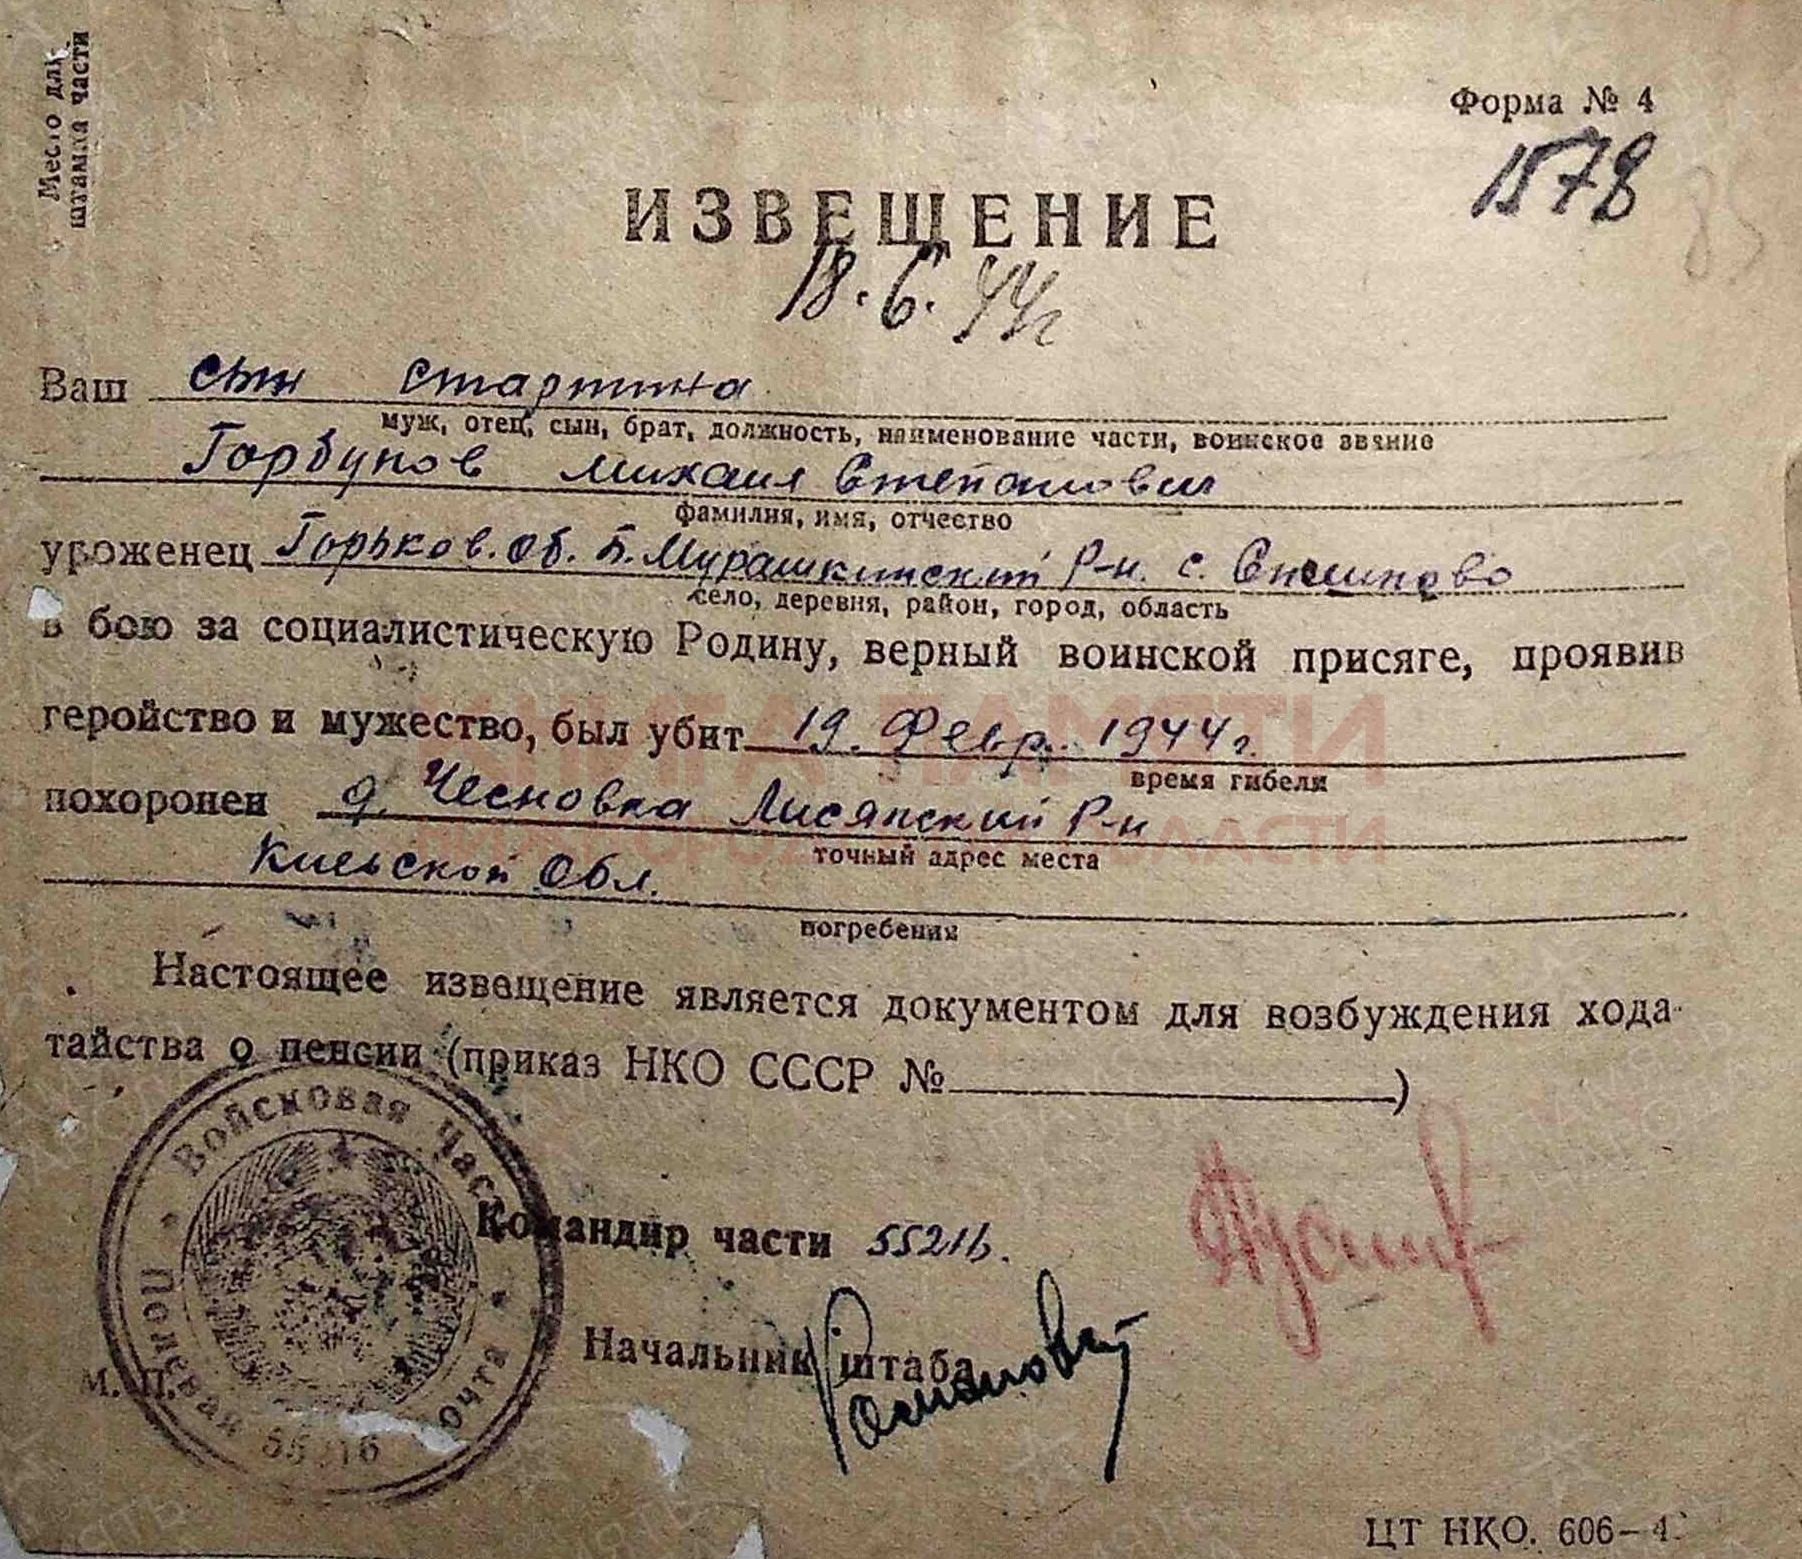 Место для
штампа части
Форма № 4
1578
85
ИЗВЕЩЕНИЕ
18.6.44г
Ваш сын старшина
муж, отец, сын, брат, должность, наименование части, воинское звание
Горбунов Михаил Степанович
фамилия, имя, отчество
уроженец Горьков. Об. Б. Мурашкинский Р-н. с.
село, деревня, район, город, область
в бою за социалистическую Родину, верный воинской присяге, проявив
геройство и мужество, был убит 19. Февр. 1944г.
время гибели
похоронен д. Чесновка Лисянский Р-н
точный адрес места
Киевской Обл.
погребения
Настоящее извещение является документом для возбуждения хода-
тайства о пенсии (приказ НКО СССР № )
Войсковая Часть
Полевая Почта
Командир части 55216.
Начальник штаба
М. П.
ЦТ НКО. 606-4
КНИГА ПАМЯТИ
НИЖЕГОРОДСКОЙ ОБЛАСТИ